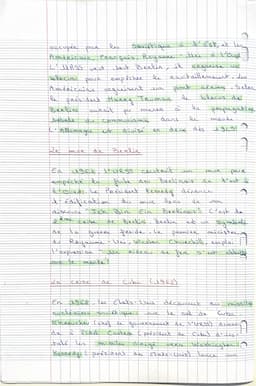 occupée par les Soviétiques à l'Est, et les
Américains, Français, Royaume-Uni à l'Ouest
L'URSS veut tout Berlin, il organise un
blocus pour empêcher le ravitaillement. Les
Américains organisent un pont aérien. Selon
le président Harry Truman, le blocus de
Berlin
du communisme dans le monde
L'Allemagne est divisé en deux dès 1949
Le mur de Berlin
En 1961 l'URSS construit un mur pour
empêcher la fuite des berlinois de l'est à
l'Ouest. Le Président Kennedy dénonce
l'édification du mur dans
discours "Ich Bin Ein Berliner". C'est la
crise de Berlin et un symbole
de la guerre froide. Le premier ministre
du Royaume-Uni, Winston Churchill emploi
l'expression "Un rideau de fer s'est abattu
sur le monde"
La crise de Cuba (1962)
En 1962 les États-Unis découvrent des missiles
nucléaires soviétiques sur le sol de Cuba
(chef du gouvernement de l'URSS)
à Fidel Castro (président de Cuba) d'ins-
taller les missiles dirigé vers Washington.
Kennedy (président des États-Unis) lance un